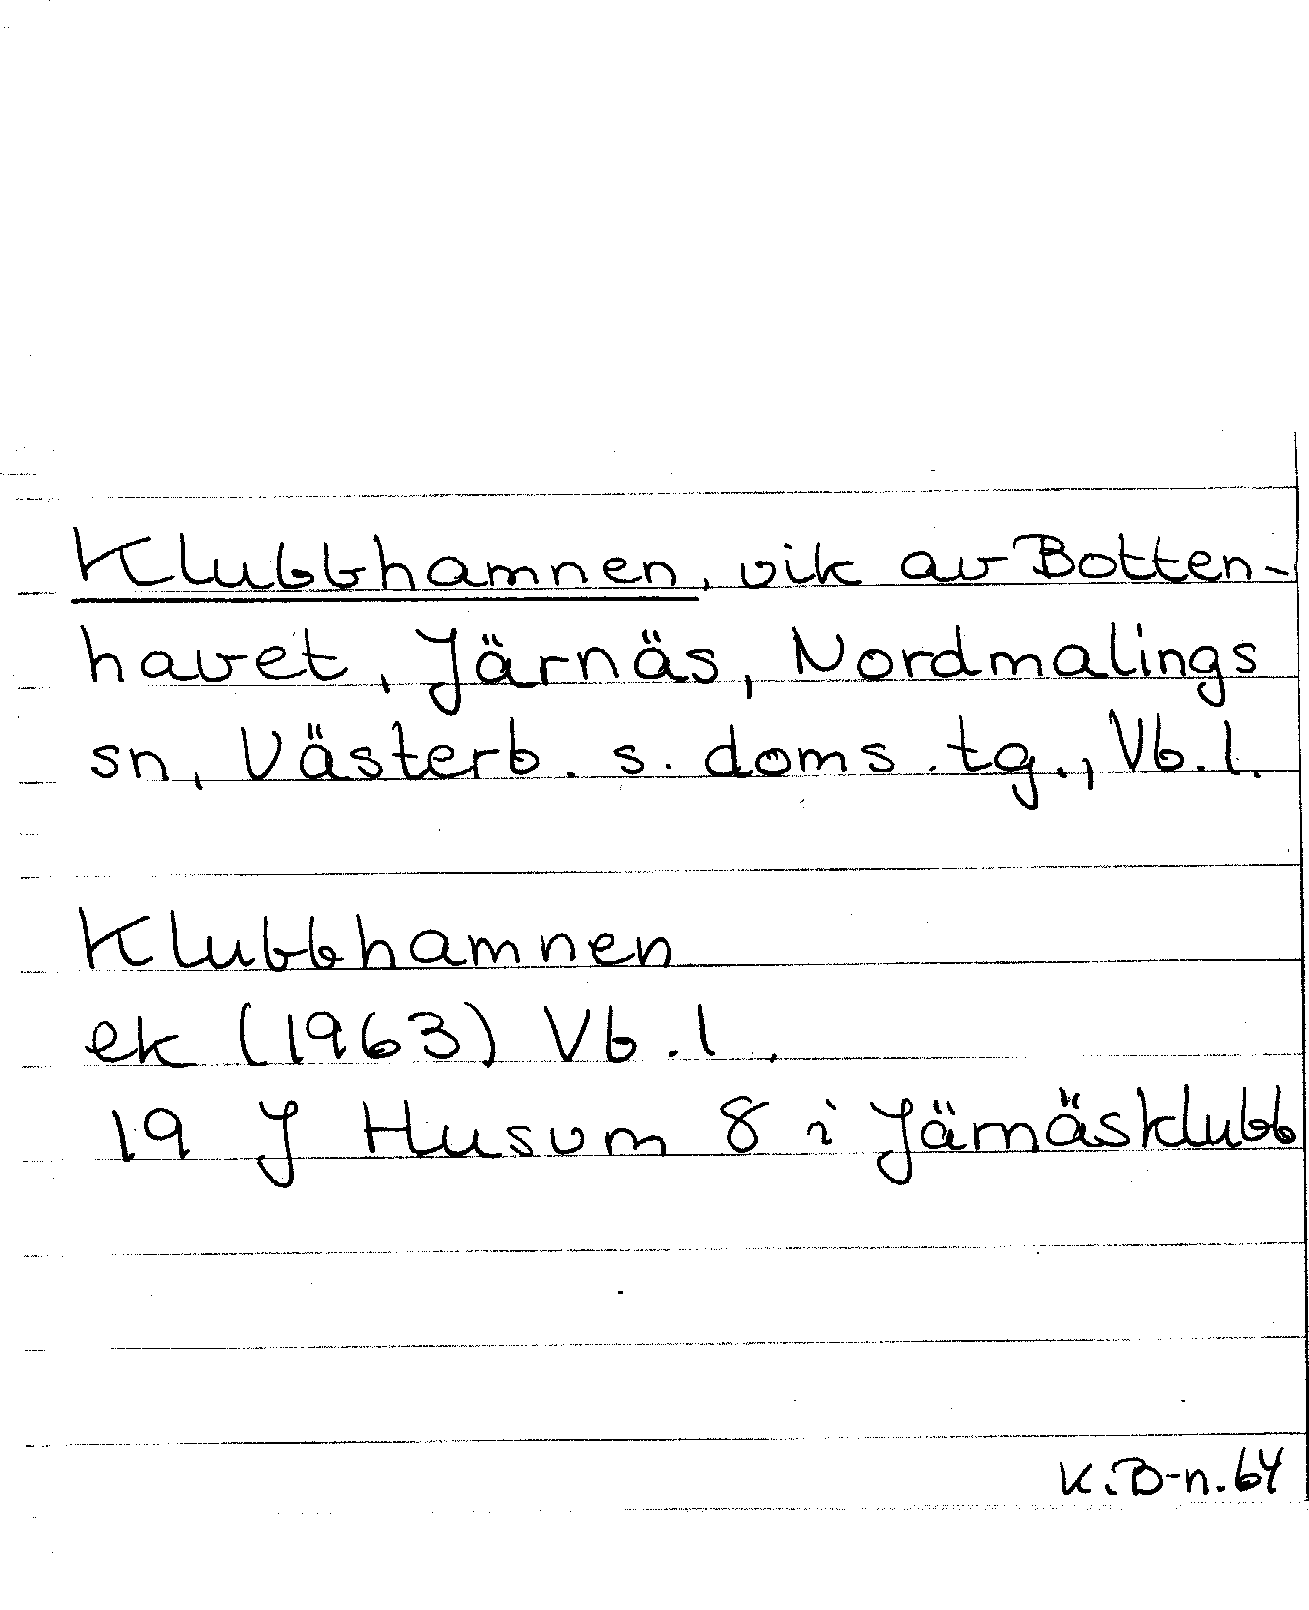 Klubbhamnen, vik av Botten-
havet, Järnäs, Nordmalings
sn, Västerb. s. doms. tg., Vb. l.
Klubbhamnen
ek (1963) Vb. l.
19 J Husum 8 i Järnäsklubb
K.B-n.64